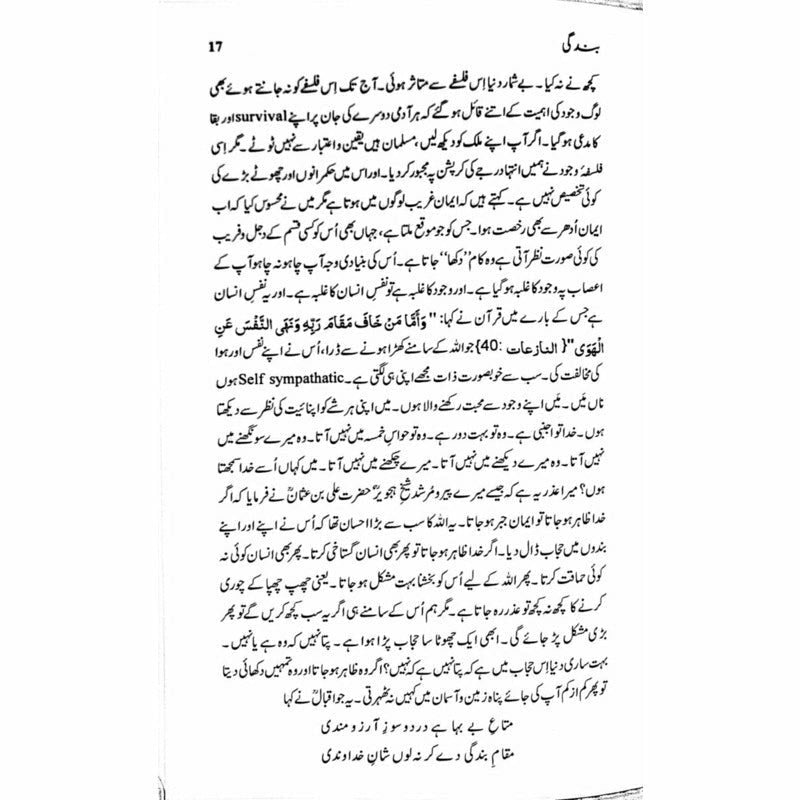 بندگی 17
کچھ نے نہ کیا۔ بے شمار دنیا اِس فلسفے سے متاثر ہوئی۔ آج تک اِس فلسفے کو نہ جانتے ہوئے بھی
لوگ وجود کی اہمیت کے اتنے قائل ہو گئے کہ ہر آدمی دوسرے کی جان پر اپنے survival اور بقا
کا مدعی ہو گیا۔ اگر آپ اپنے ملک کو دیکھ لیں، مسلمان ہیں یقین و اعتبار سے نہیں ٹوٹے۔ مگر اِسی
فلسفۂ وجود نے ہمیں انتہا درجے کی کرپشن پہ مجبور کر دیا۔ اور اس میں حکمرانوں اور چھوٹے بڑے کی
کوئی تخصیص نہیں ہے۔ کہتے ہیں کہ ایمان غریب لوگوں میں ہوتا ہے مگر میں نے محسوس کیا کہ اب
ایمان اُدھر سے بھی رخصت ہوا۔ جس کو جو موقع ملتا ہے، جہاں بھی اُس کو کسی قسم کے دجل و فریب
کی کوئی صورت نظر آتی ہے وہ کام ”دکھا“ جاتا ہے۔ اُس کی بنیادی وجہ آپ چاہو نہ چاہو آپ کے
اعصاب پہ وجود کا غلبہ ہو گیا ہے۔ اور وجود کا غلبہ ہے تو نفسِ انسان کا غلبہ ہے۔ اور یہ نفسِ انسان
ہے جس کے بارے میں قرآن نے کہا: " وَأَمَّا مَنْ خَافَ مَقَامَ رَبِّهِ وَنَهَى النَّفْسَ عَنِ
الْهَوَى"{ النازعات :40} جو اللہ کے سامنے کھڑا ہونے سے ڈرا، اُس نے اپنے نفس اور ہوا
کی مخالفت کی۔ سب سے خوبصورت ذات مجھے اپنی ہی لگتی ہے۔ Self sympathatic ہوں
ناں مَیں۔ مَیں اپنے وجود سے محبت رکھنے والا ہوں۔ میں اپنی ہر شے کو اپنائیت کی نظر سے دیکھتا
ہوں۔ خدا تو اجنبی ہے۔ وہ تو بہت دور ہے۔ وہ تو حواسِ خمسہ میں نہیں آتا۔ وہ میرے سونگھنے میں
نہیں آتا۔ وہ میرے دیکھنے میں نہیں آتا۔ میرے چکھنے میں نہیں آتا۔ میں کہاں اُسے خدا سمجھتا
ہوں؟ میرا عذر یہ ہے کہ جیسے میرے پیر و مُرشد شیخِ ہجویرؒ حضرت علی بن عثمانؒ نے فرمایا کہ اگر
خدا ظاہر ہو جاتا تو ایمان جبر ہو جاتا۔ یہ اللہ کا سب سے بڑا احسان تھا کہ اُس نے اپنے اور اپنے
بندوں میں حجاب ڈال دیا۔ اگر خدا ظاہر ہو جاتا تو پھر بھی انسان گستاخی کرتا۔ پھر بھی انسان کوئی نہ
کوئی حماقت کرتا۔ پھر اللہ کے لیے اُس کو بخشنا بہت مشکل ہو جاتا۔ یعنی چھپ چھپا کے چوری
کرنے کا کچھ نہ کچھ تو عذر رہ جاتا ہے۔ مگر ہم اُس کے سامنے ہی اگر یہ سب کچھ کریں گے تو پھر
بڑی مشکل پڑ جائے گی۔ ابھی ایک چھوٹا سا حجاب پڑا ہوا ہے۔ پتا نہیں کہ وہ ہے یا نہیں۔
بہت ساری دنیا اِس حجاب میں ہے کہ پتا نہیں ہے کہ نہیں؟ اگر وہ ظاہر ہو جاتا اور وہ تمہیں دکھائی دیتا
تو پھر کم از کم آپ کی جائے پناہ زمین و آسمان میں کہیں نہ ٹھہرتی۔ یہ جو اقبالؒ نے کہا
متاعِ بے بہا ہے درد و سوزِ آرزو مندی
مقامِ بندگی دے کر نہ لوں شانِ خداوندی